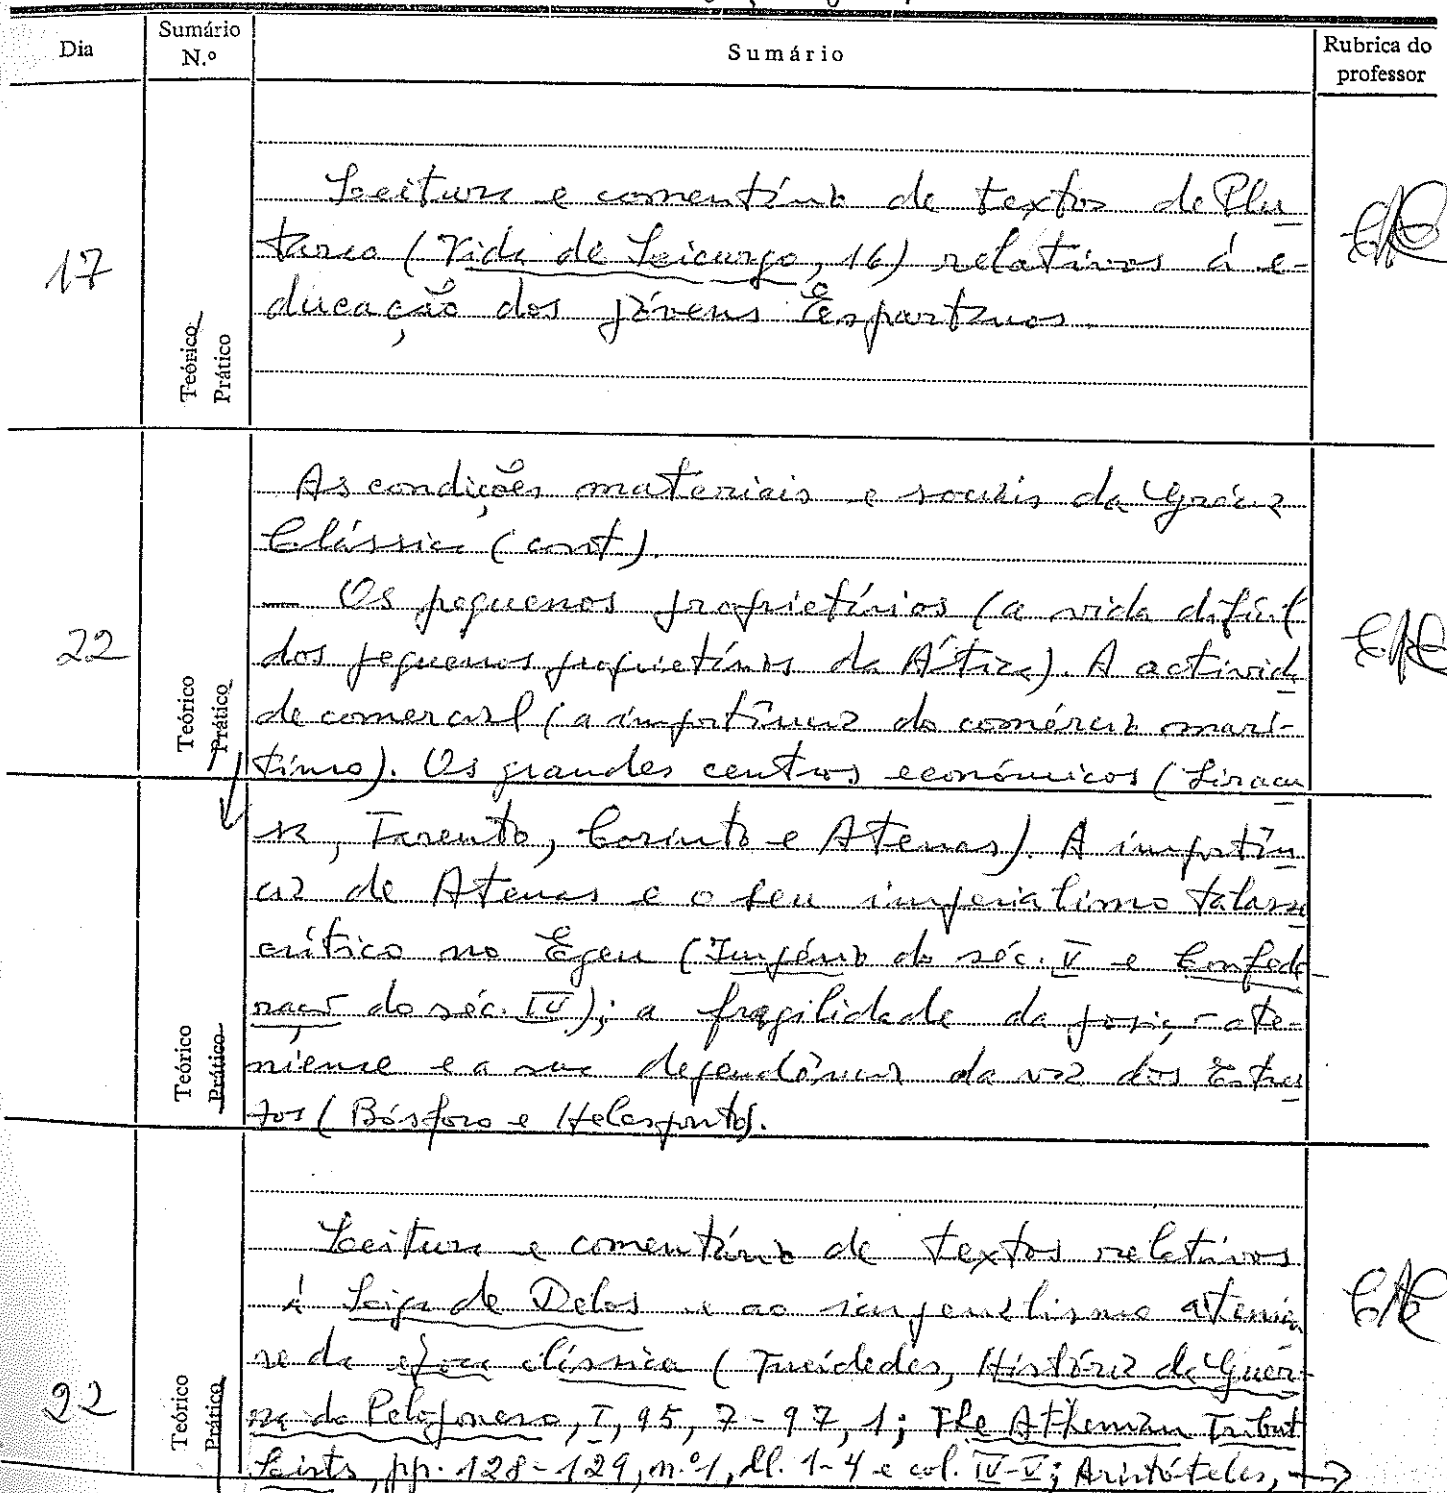 Dia Sumário N.º Sumário Rubrica do professor
Leitura e comentário de textos de Plu
tarco (Vida de Licurgo, 16) relativos à e-
17
ducação dos jóvens Espartanos.
Teórico Prático
As condições materiais e sociais da Grécia
Clássica (cont).
— Os pequenos proprietários (a vida difícil
22
dos pequenos proprietários da Ática). A activida
de comercial (a importância do comércio marí-
Teórico Prático
timo). Os grandes centros económicos (Siracu
sa, Tarento, Corinto e Atenas). A importân
cia de Atenas e o seu imperialismo talasso
crítico no Egeu (Império do séc. V e Confede
ração do séc. IV); a fragilidade da posição ate-
niense e a sua dependência da via dos Estrei
Teórico Prático
tos (Bósforo e Helesponto).
Leitura e comentário de textos relativos
à Liga de Delos e ao imperialismo atenien
se da época clássica (Tucídedes, História da Guer-
22
ra do Peloponeso, I, 95, 7-97, 1; The Athenian Tribut
Teórico Prático
Lists, pp. 128-129, n.º 1, ll. 1-4 e col. IV-V; Aristóteles, →